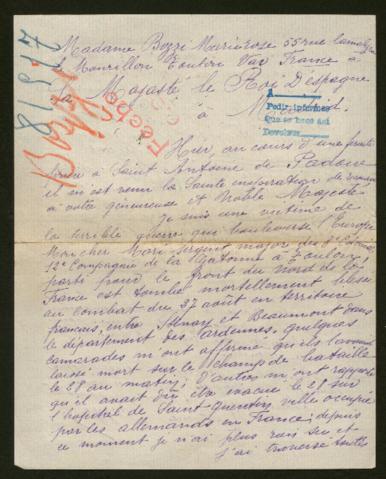 Madame Bozzi Marierose 55 rue Lamalgue
le Mourillon Toulon Var France à
Sa Majesté le Roi D'espagne
à Madrid.
27318
Fecho
A
Pedir informes
Que se hace así
Devolver
Hier au cours d'une prière
à Saint Antoine de Padoue
il m'est venu la Sainte inspiration de
à votre généreuse et Noble Majesté
Je suis une victime de
la terrible guerre qui bouleverse l'Europe
Mon cher Mari sergent major des
12e Compagnie de la à Toulon,
partis pour le front du Nord de la
France est tombé mortellement blessé
au combat du 27 août en territoire
français, entre Stenay et Beaumont dans
le département des Ardennes, quelques
camarades m'ont affirmé qu'ils l'avaient
laissé mort sur le champs de bataille
le 28 au matin; D'autres m'ont rapporté
qu'il avait dû être évacué le 28 sur
l'hôpital de Saint Quentin ville occupée
par les allemands en France; depuis
ce moment je n'ai plus rien su et
j'ai traversé toutes